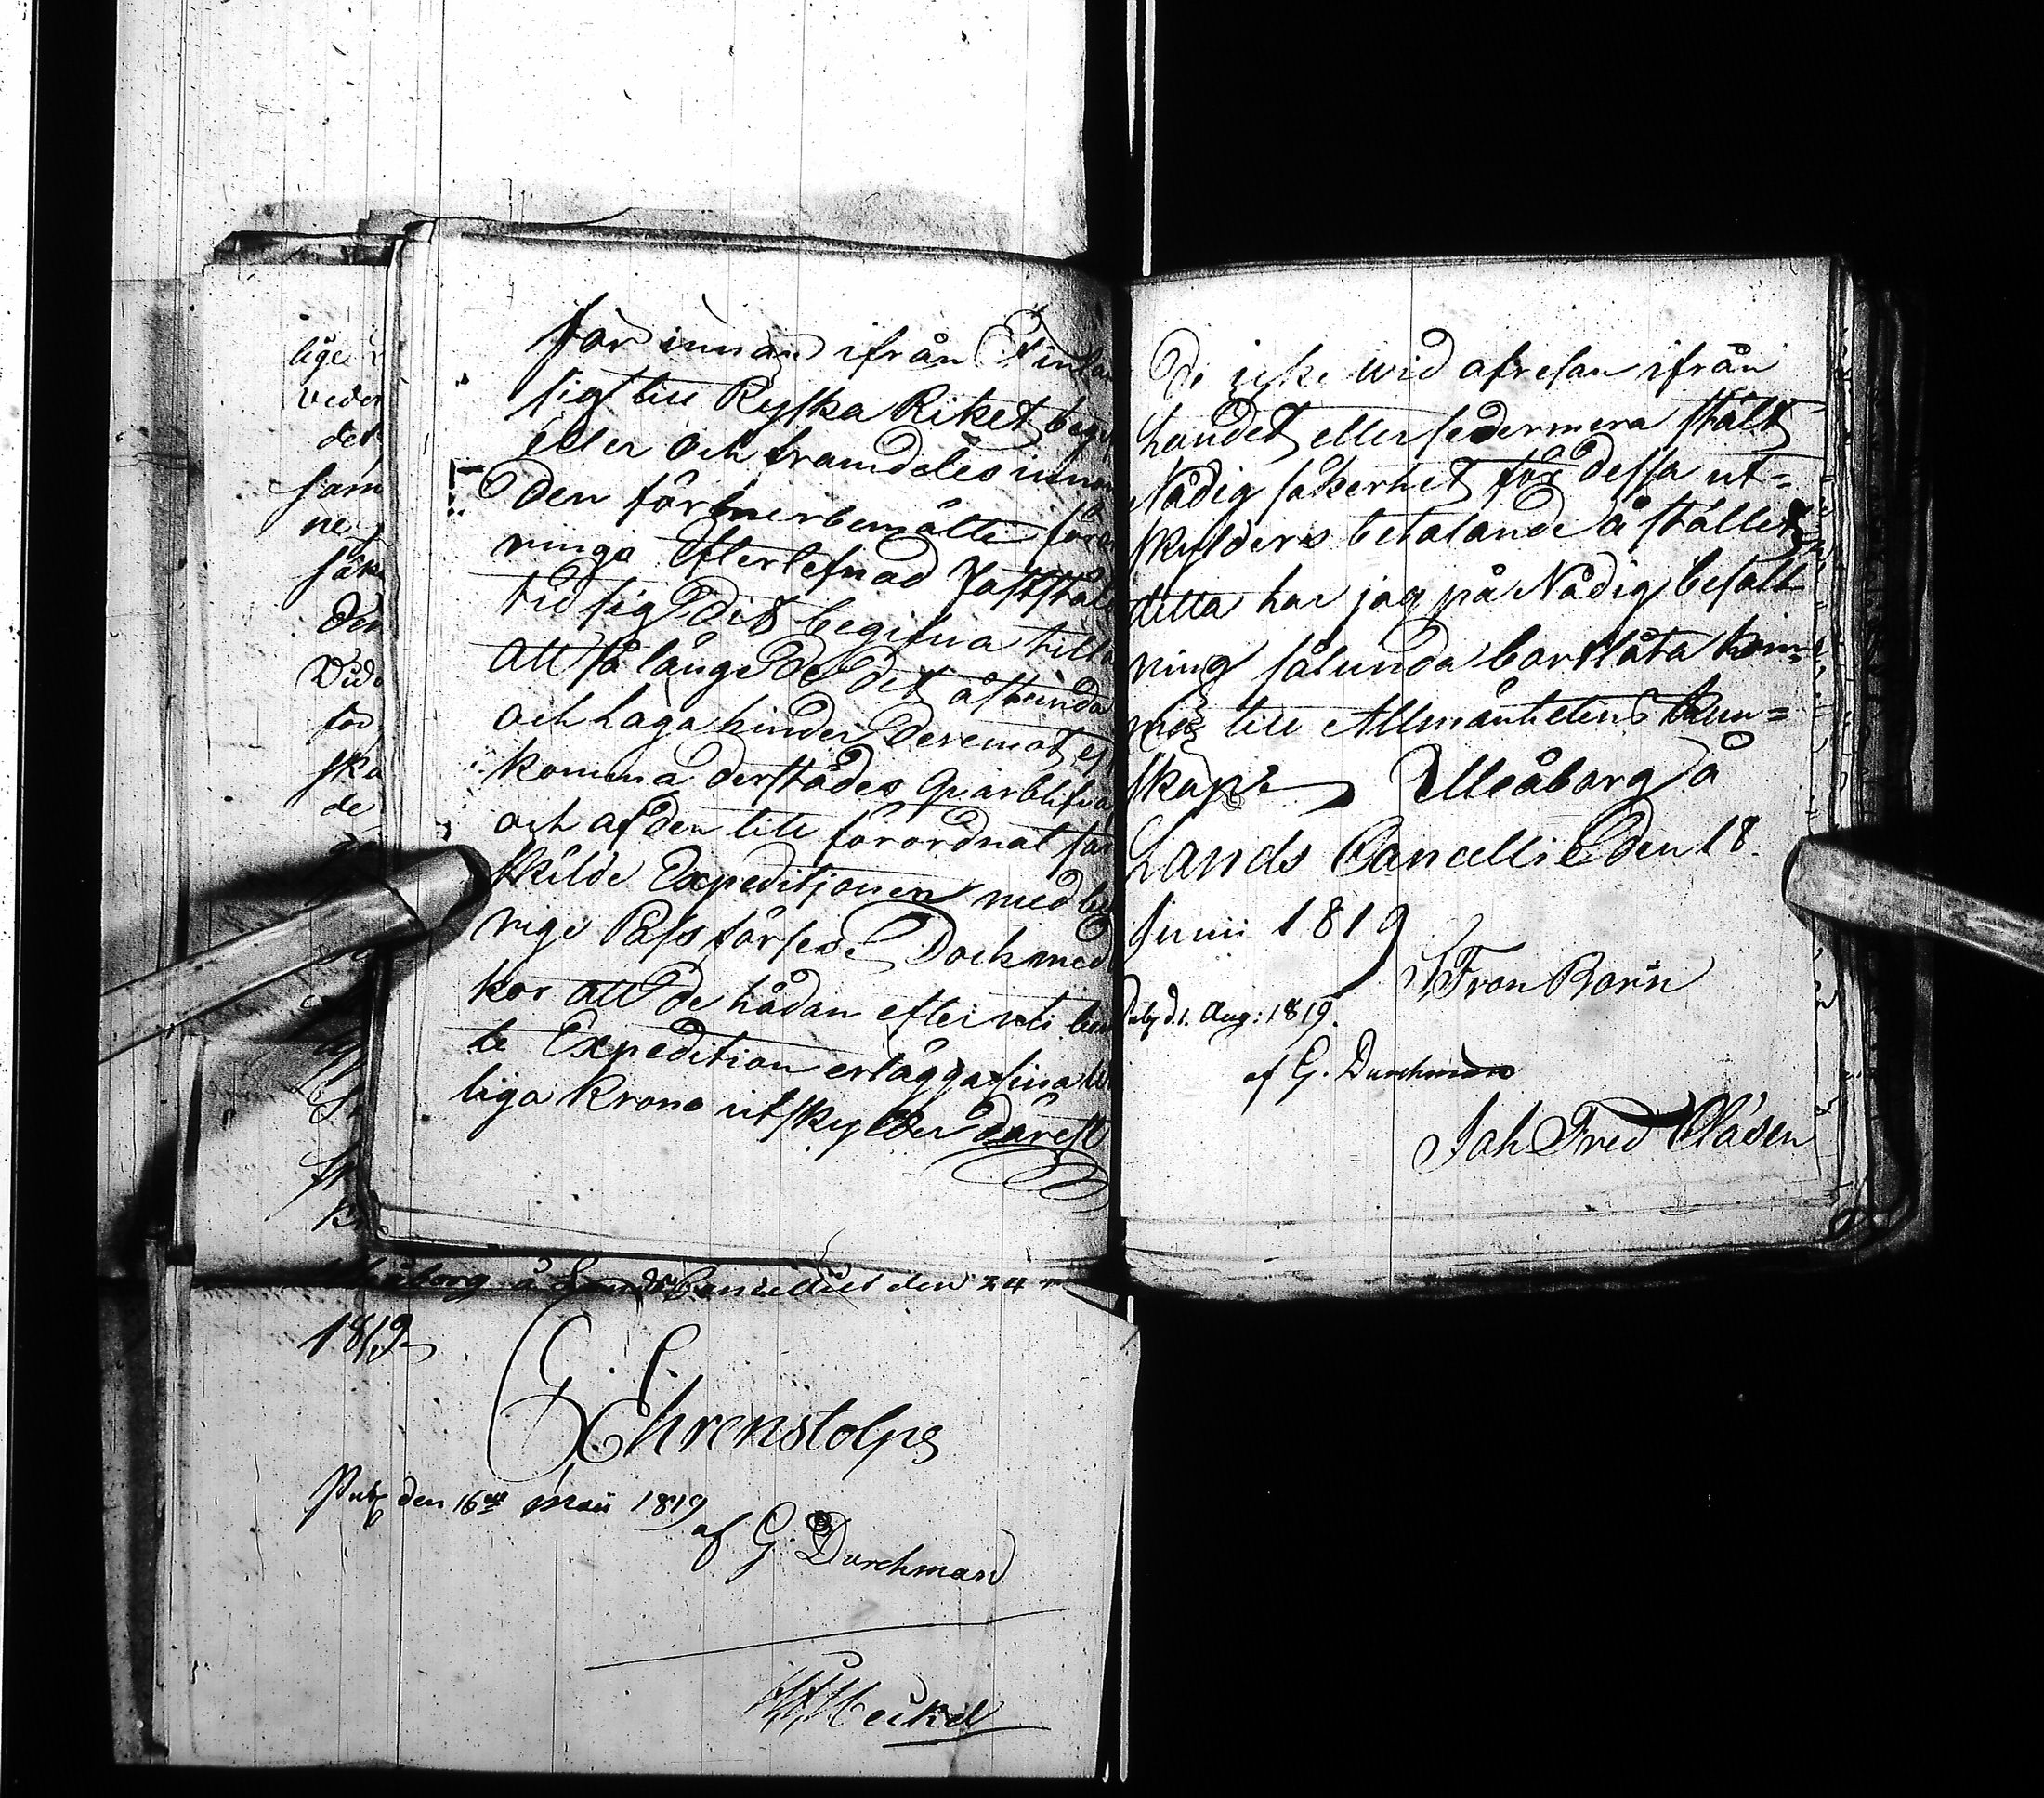 för innan ifrån Finla
sig till Ryska Riket begif
eller och framdeles inna
den förhmerbemälte föro
nings Efterlefnad faststäld
tid sig dit begifva tilld
att så länge de det åstunda
och laga hinder deremot ej
komma derstädes qvarblifva
och af den till förordnat sär
skilde Expeditionen med be
rige Pass förses. Dock med
kor att de hådan efter uti ber
te Expedition erlägga sina
liga Krono utskylder därest
de icke wid afresan ifrån
landet eller sedermera stält
Nådig säkerhet för dessa ut=
skylders betalande å stället
detta har jag på Nådig befall
ning sålunda bordt låta kom=
ma till Allmänhetens kun=
skap. Uleåborg å
Lands Cancelliet den 18.
Junii 1819
von Born
Pub. d. 1. Aug: 1819.
af G. Durchman
Joh Fred Clásen
lige
veder
det
som
ne
säk
den
Vid
för
ska
de
Uleåborg å Lands Cancelliet den 24
1819
G. Ehrenstolpe
Publ den 16de Maii 1819
af G. Durchman